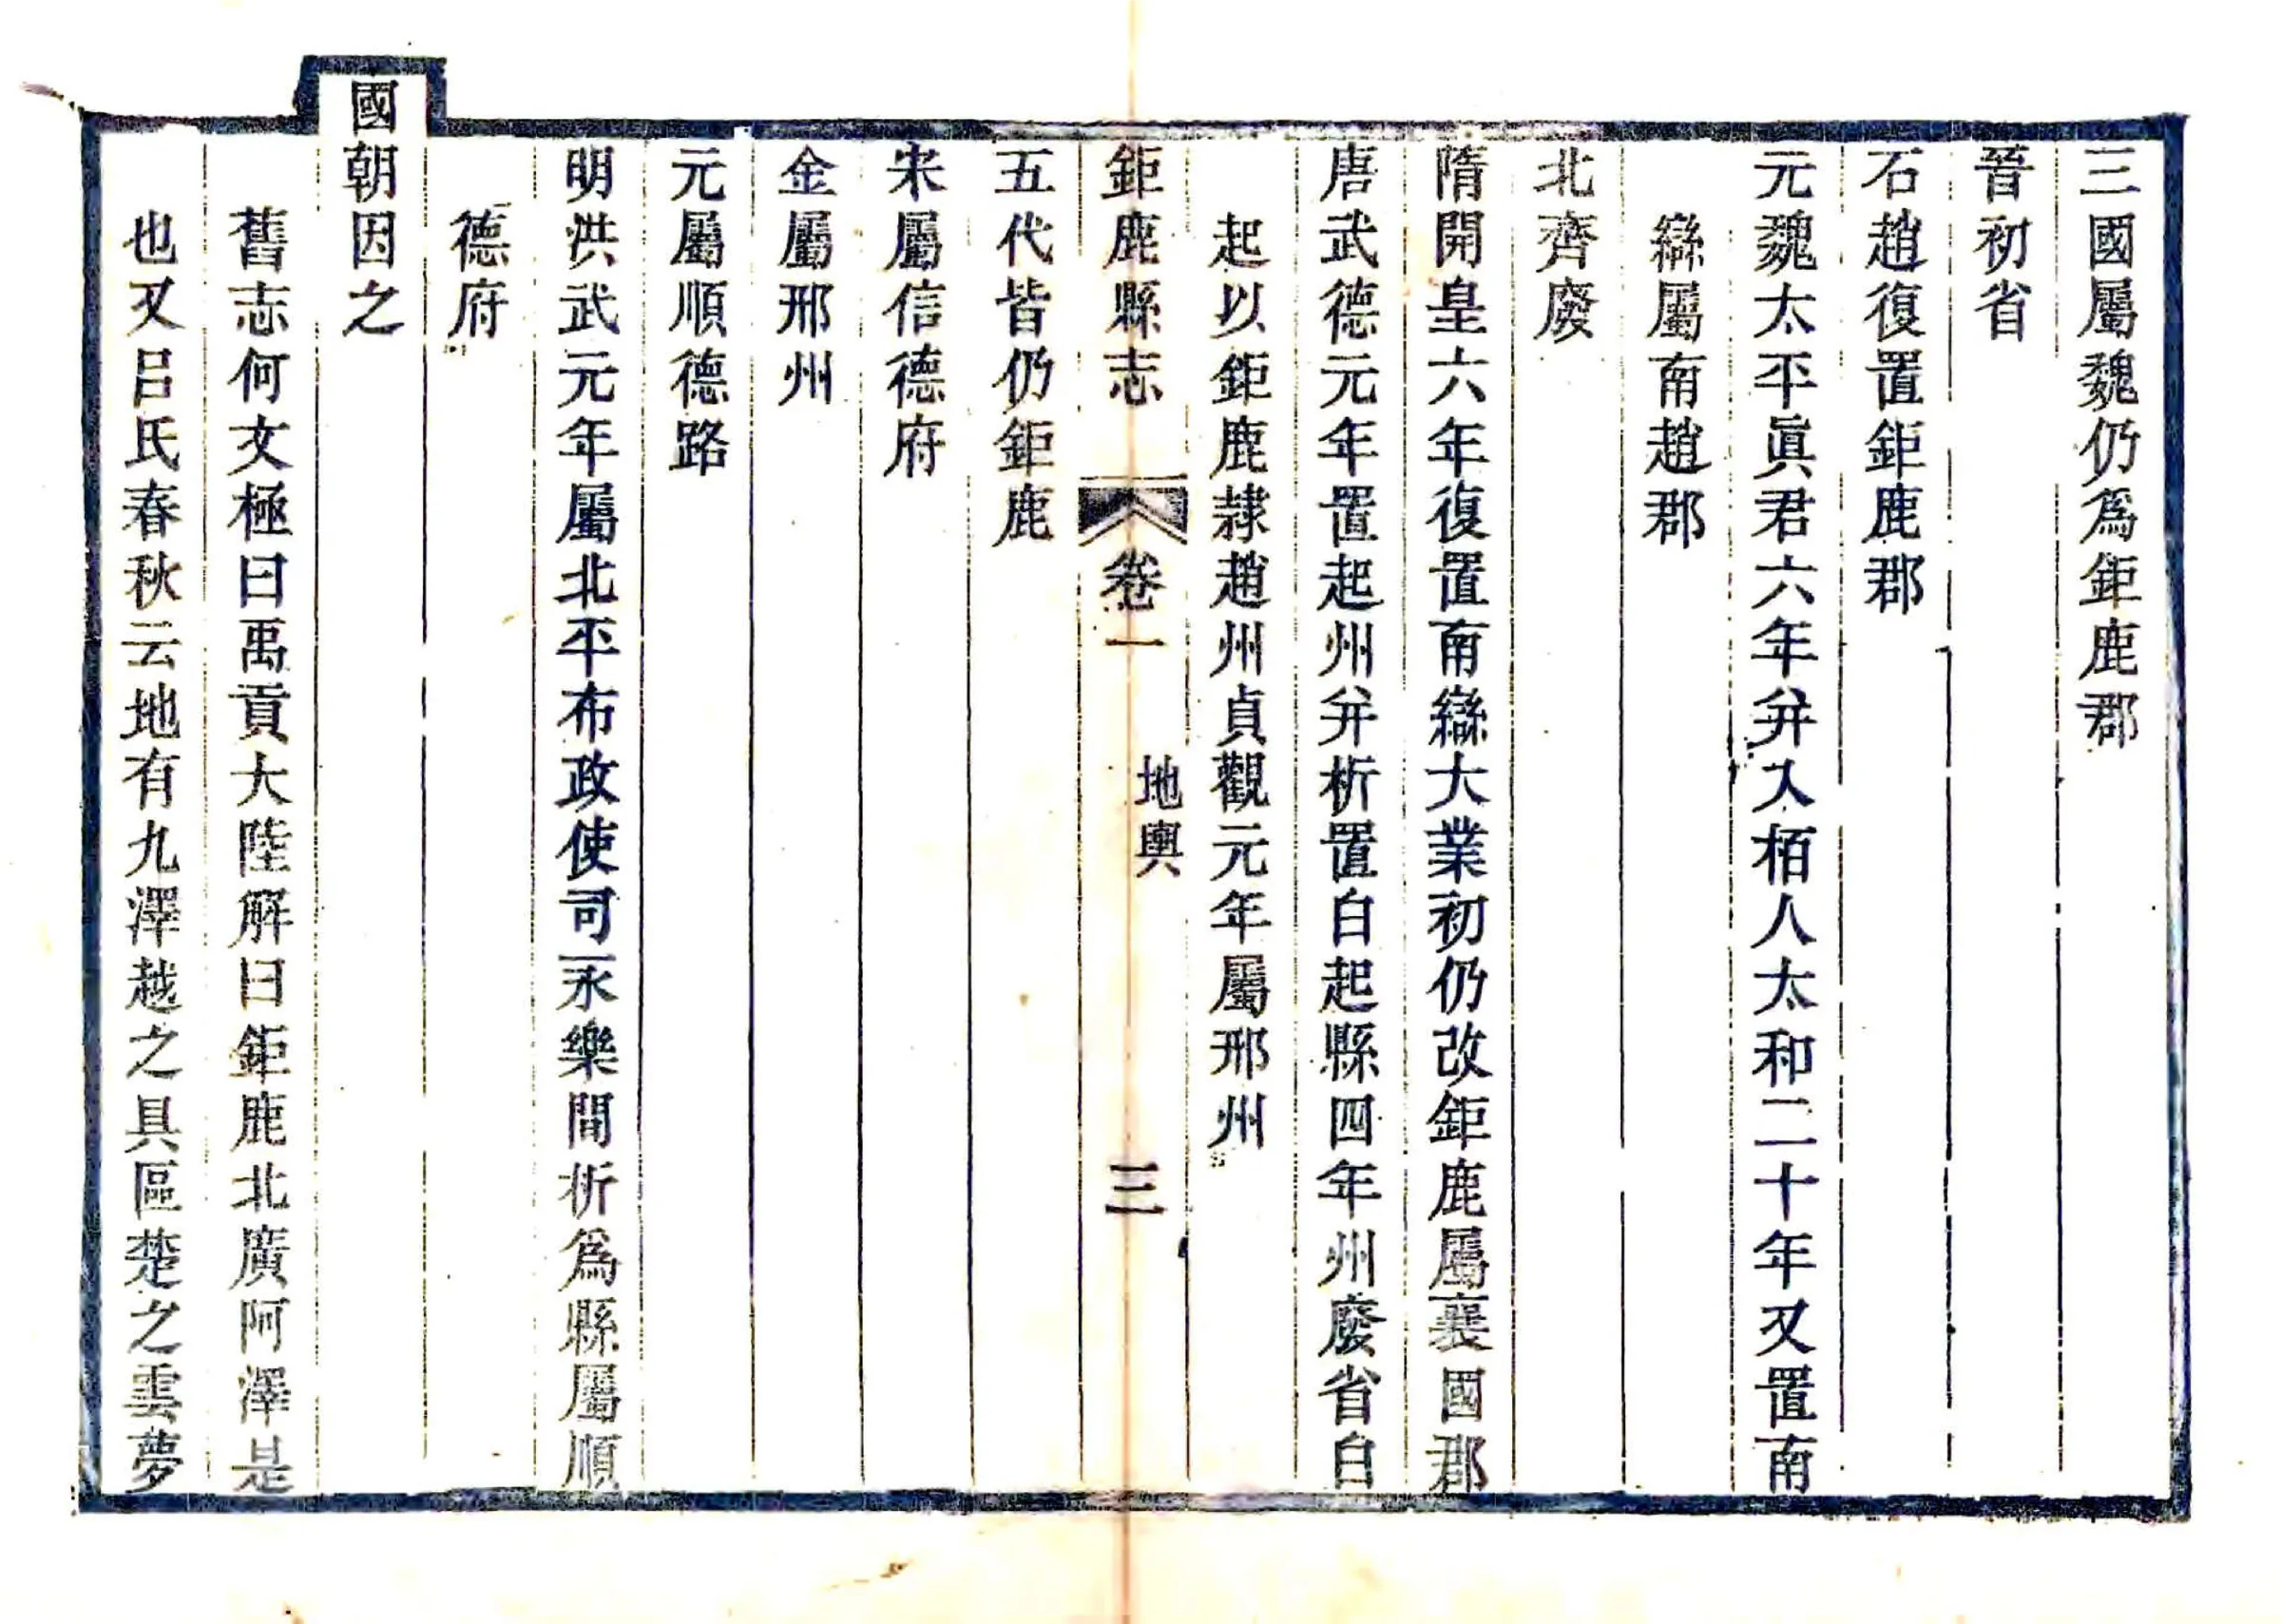 三國屬魏仍爲鉅鹿郡
晉初省
石趙復置鉅鹿郡
元魏太平眞君六年并入栢人太和二十年又置南
䜌屬南趙郡
北齊廢
隋開皇六年復置南䜌大業初仍改鉅鹿屬襄國郡
唐武德元年置起州并析置白起縣四年州廢省白
起以鉅鹿隷趙州貞觀元年屬邢州
鉅鹿縣志 卷一 地輿 三
五代皆仍鉅鹿
宋屬信德府
金屬邢州
元屬順德路
明洪武元年屬北平布政使司永樂間折爲縣屬順
德府
國朝因之
舊志何文極曰禹貢大陸解曰鉅鹿北廣阿澤是
也又呂氏春秋云地有九澤越之具區楚之雲夢